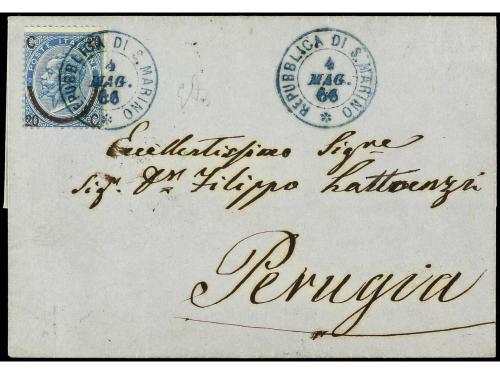 POSTE ITALIANE
C 20 20 C
REPUBBLICA DI S. MARINO
4
MAG.
66
REPUBBLICA DI S. MARINO
4
MAG.
66
Eccellentissimo Signe
Sig. Dn Filippo
Perugia